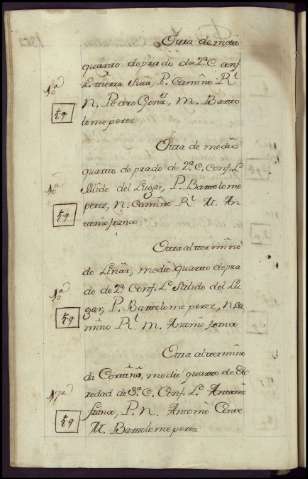 Otra de medio
quarto de prado de 2ª C, Conf
L tierra suia, P. Camino Rl
N. Pedro Gonz, M. Barto
lome perez
Otra de medio
quarto de prado de 2ª C, Conf L
Salido del Lugar, P. Bartolome
perez, N. Camino Rl M. An
tonio franco
Otra al termino
de Linar, medio quarto de pra
do de 2ª Conf L Salido del Lu
gar, P. Bartolome perez, N. Ca
mino Rl M. Antonio franco
Otra al termino
de Cortina, medio quarto de He
redad de 3ª C, Conf L Antonio
franco, P. N. Antonio
M. Bartolome perez